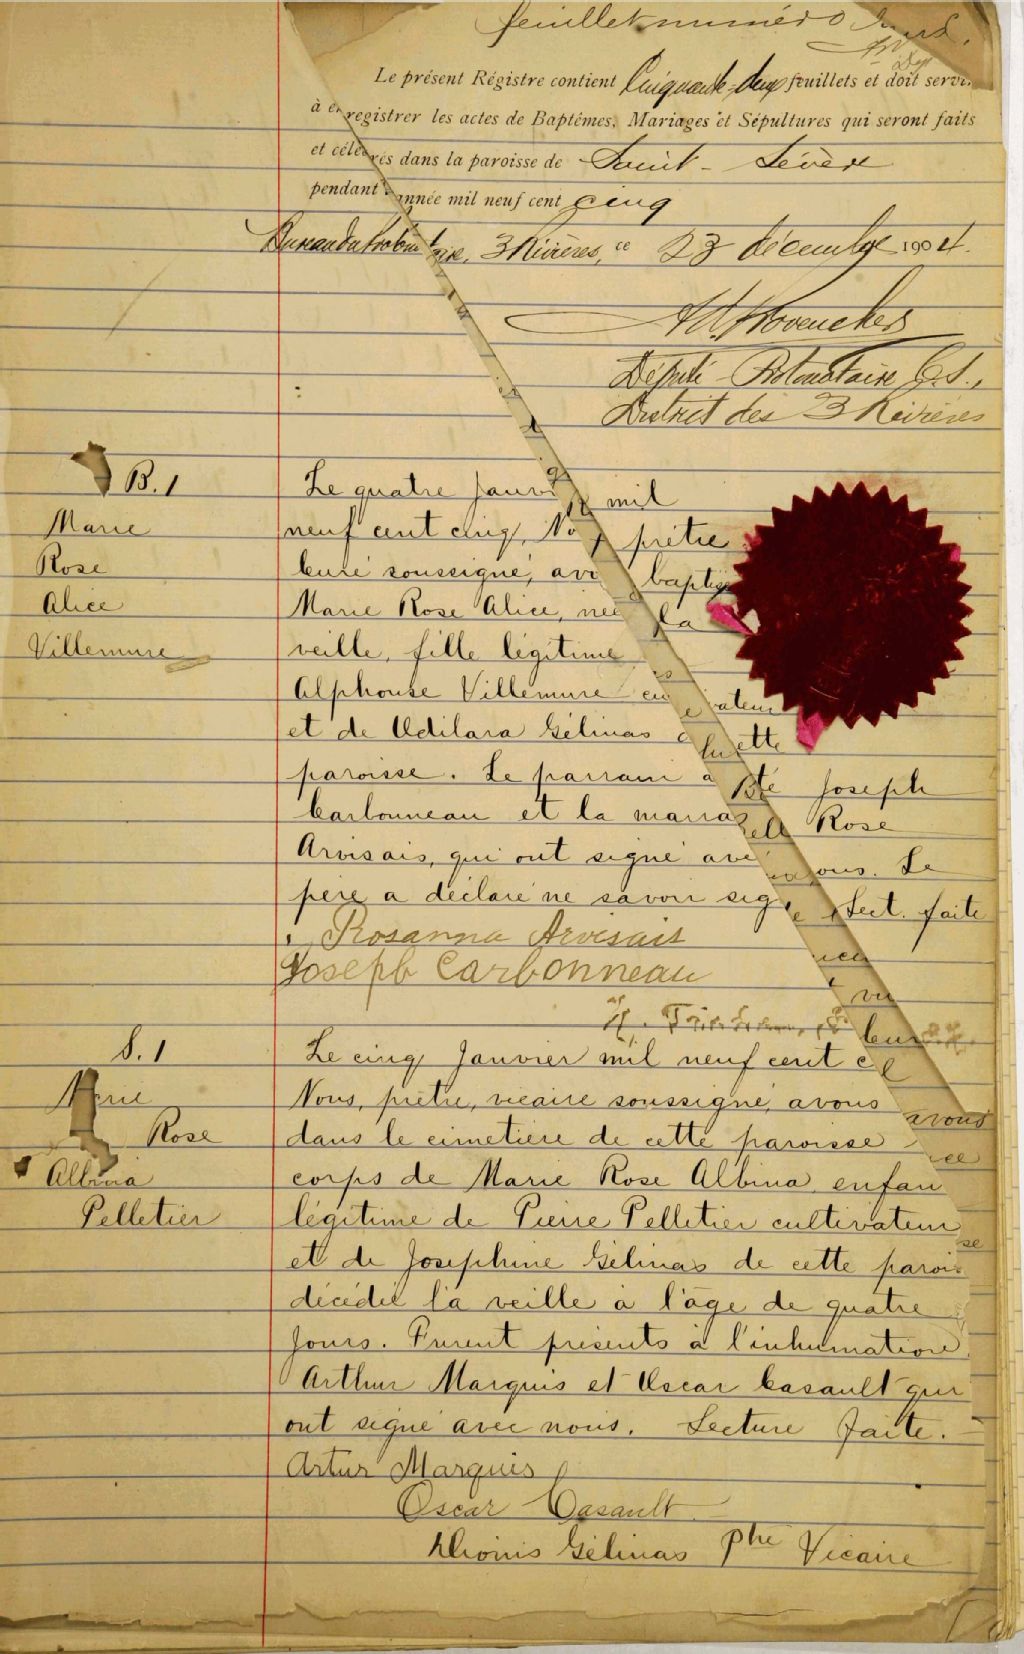 feuillet numéro
Le présent Régistre contient Cinquante-deux feuillets et doit servir
à enregistrer les actes de Baptêmes, Mariages et Sépultures qui seront faits
et célébrés dans la paroisse de Saint-Sévère
pendant l'année mil neuf cent cinq
Bureau du Protonotaire, 3 Rivières, ce 23 décembre 1904.
Député Protonotaire C.S.,
District des 3 Rivières
B. 1
Marie
Rose
Alice
Villemure
Le quatre Janvier mil
neuf cent cinq, Nous, prêtre
Curé soussigné, avons baptisé
Marie Rose Alice, née la
veille, fille légitime
Alphonse Villemure cultivateur
et de Odilara Gélinas de cette
paroisse. Le parrain a été Joseph
Carbonneau et la marraine Rose
Arvisais, qui ont signé avec nous. Le
père a déclaré ne savoir signer. Lect. faite
Rosanna Arvisais
Joseph Carbonneau
S. 1
Marie
Rose
Albina
Pelletier
Le cinq Janvier mil neuf cent
Nous, prêtre, vicaire soussigné, avons
dans le cimetière de cette paroisse
corps de Marie Rose Albina, enfan
légitime de Pierre Pelletier cultivateur
et de Josephine Gélinas de cette parois
décédée la veille à l'âge de quatre
jours. Furent présents à l'inhumation
Arthur Marquis et Oscar Casault qui
ont signé avec nous. Lecture faite.
Artur Marquis
Oscar Casault
Dionis Gélinas Ptre Vicaire